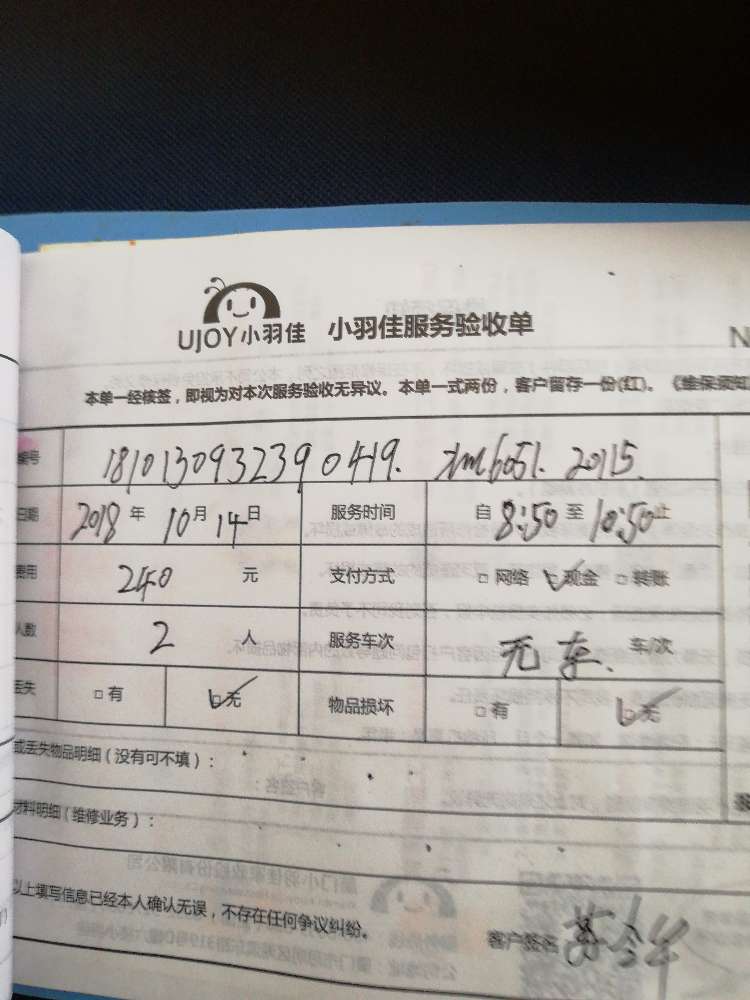 UJOY小羽佳 小羽佳服务验收单
N
本单一经核签，即视为对本次服务验收无异议。本单一式两份，客户留存一份(红)。《维保须知
编号 1810130932390419. xm6051. 20115.
日期 2018 年 10 月 14 日 服务时间 自 8:50 至 10:50 止
费用 240 元 支付方式 □ 网络 □ 现金 □ 转账
人数 2 人 服务车次 无车. 车/次
丢失 □ 有 □ 无 物品损坏 □ 有 □ 无
或丢失物品明细（没有可不填）：
材料明细（维修业务）：
以上填写信息已经本人确认无误，不存在任何争议纠纷。 客户签名